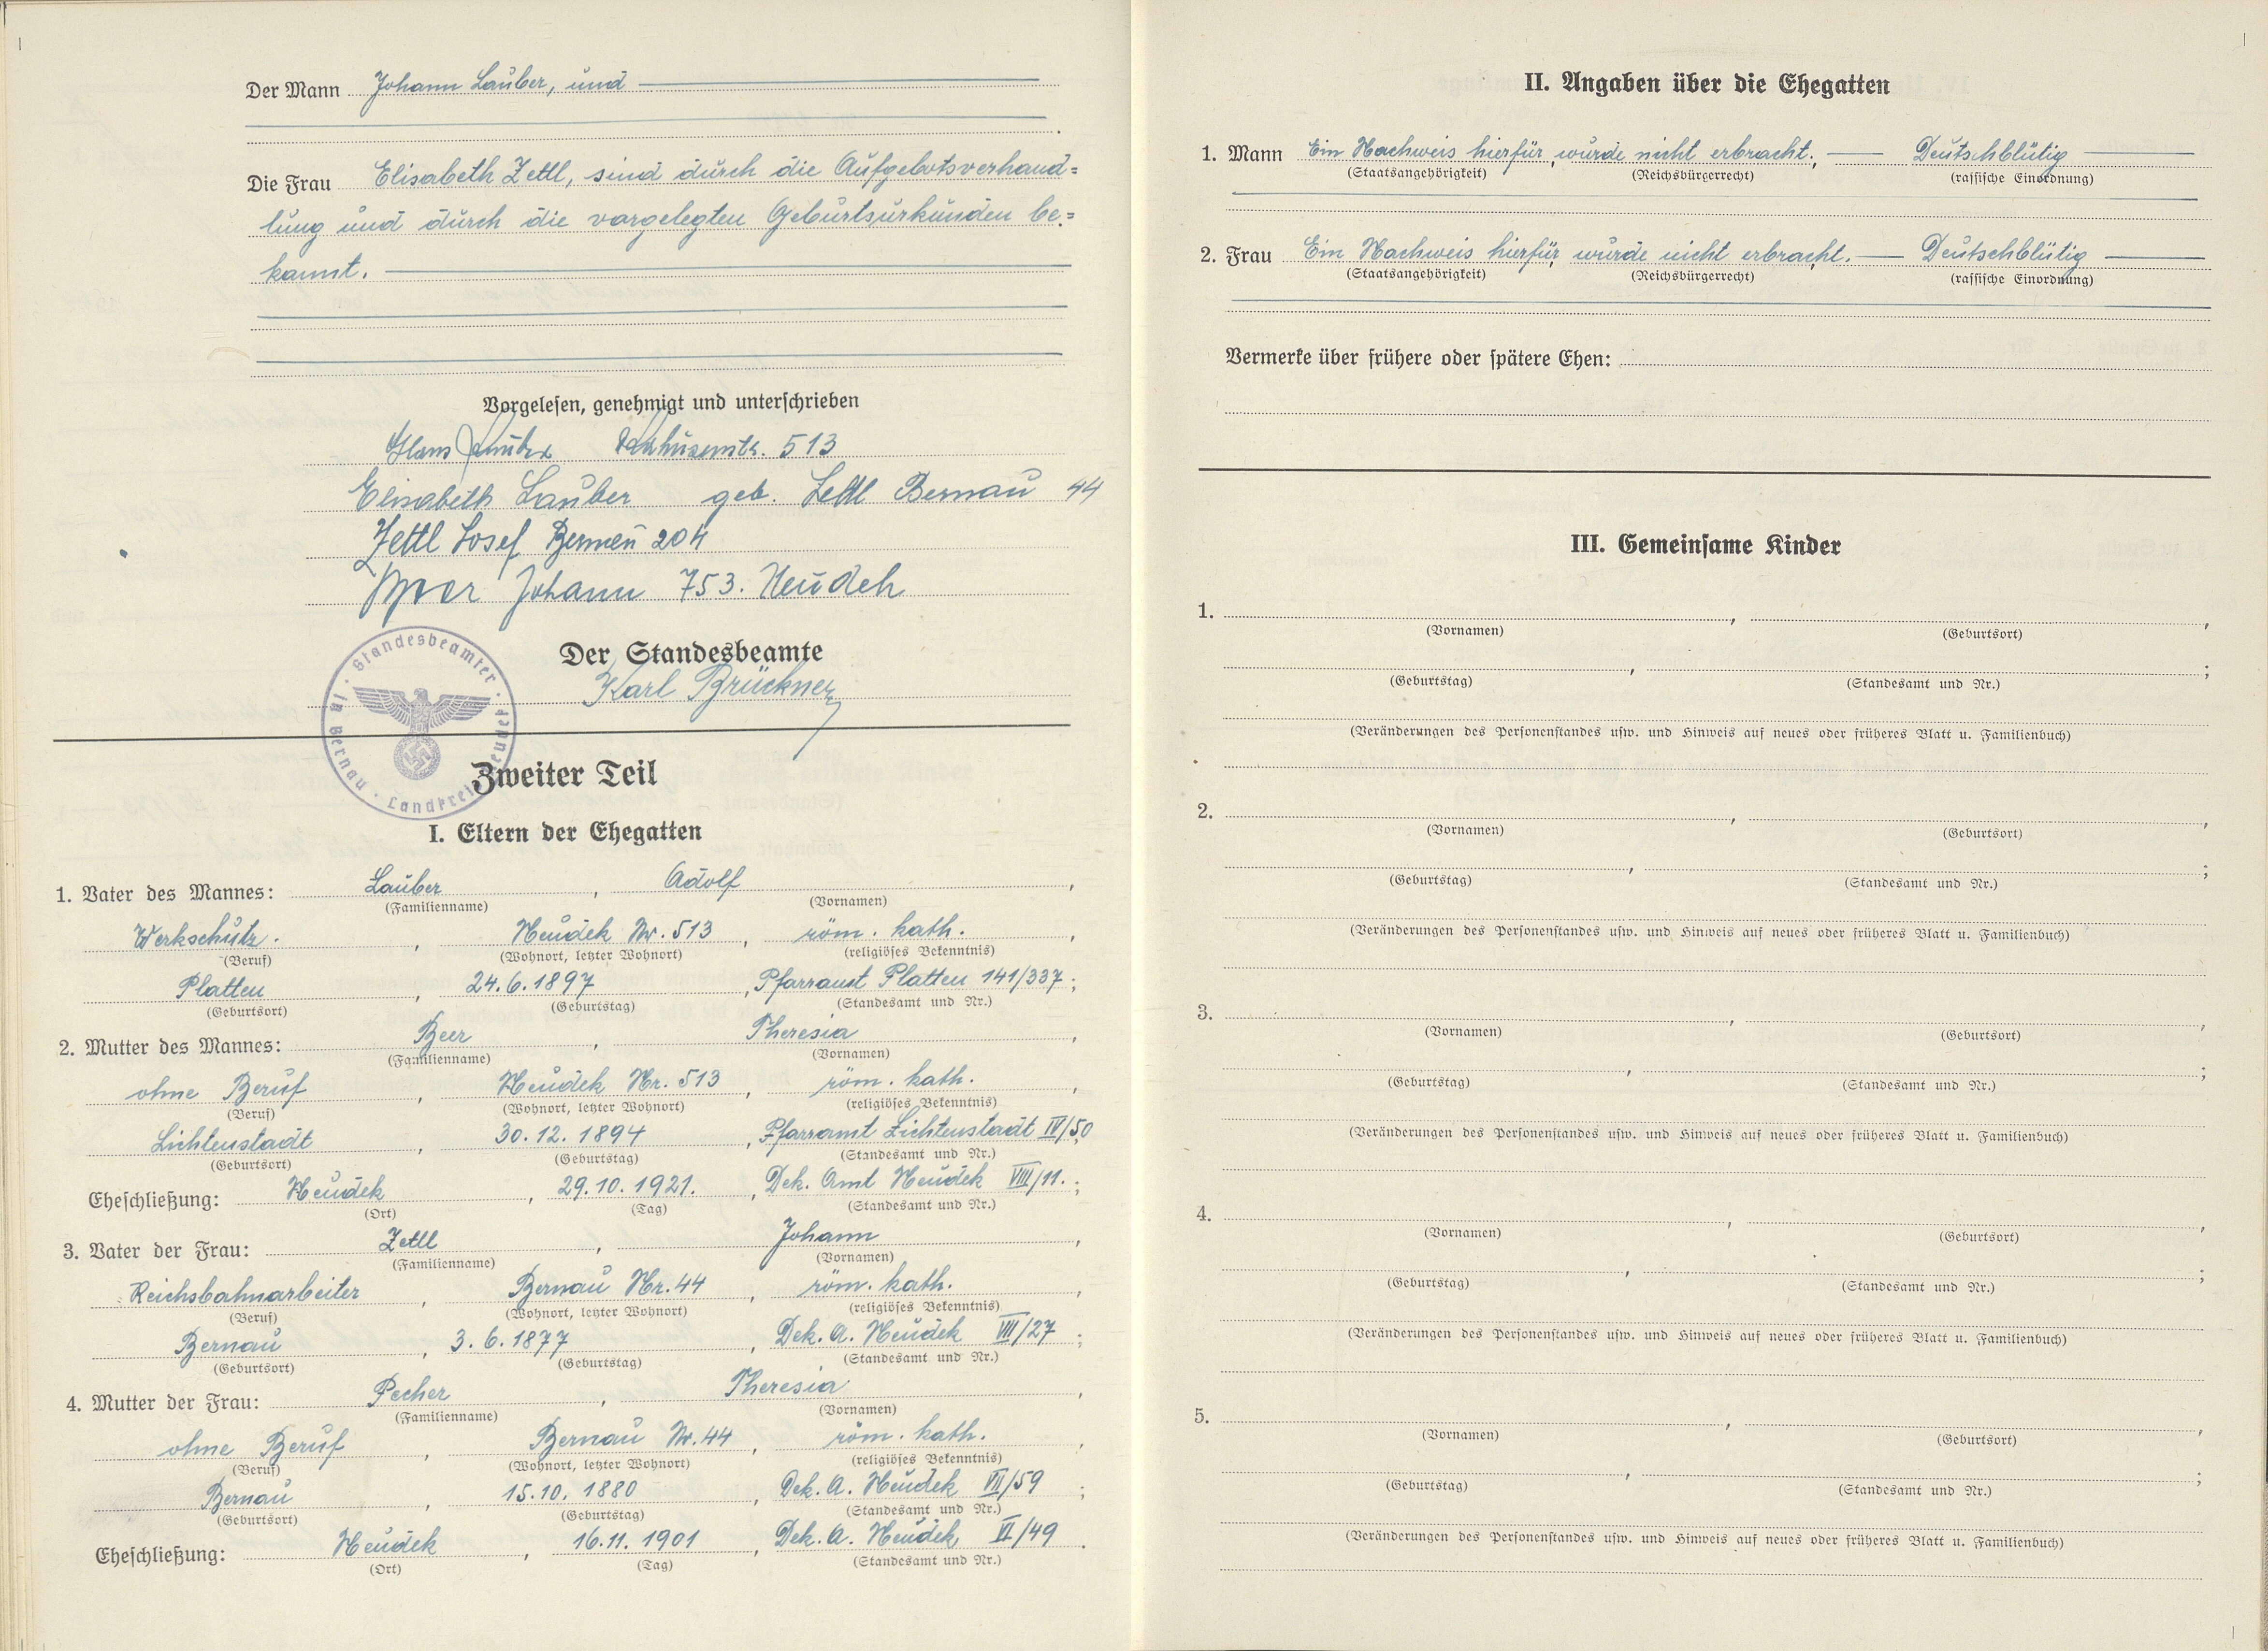 Der Mann Johann Lauber, und
Die Frau Elisabeth Zettl, sind durch die Aufgebotsverhand=
lung und durch die vorgelegten Geburtsurkunden be=
kannt.
Vorgelesen, genehmigt und unterschrieben
Hans Lauber 513
Elisabeth Lauber geb. Zettl Bernau 44
Zettl Josef Bernau 204
Johann 753. Neudek
Der Standesbeamte
Karl Brückner
Standesbeamter
Bernau
Landkreis Neudek
Zweiter Teil
I. Eltern der Ehegatten
1. Vater des Mannes: Lauber, Adolf,
(Familienname) (Vornamen)
Werkschutz., Neudek Nr. 513, röm. kath.,
(Beruf) (Wohnort, letzter Wohnort) (religiöses Bekenntnis)
Platten, 24.6.1897, Pfarramt Platten 141/337;
(Geburtsort) (Geburtstag) (Standesamt und Nr.)
2. Mutter des Mannes: Beer, Theresia,
(Familienname) (Vornamen)
ohne Beruf, Neudek Nr. 513, röm. kath.,
(Beruf) (Wohnort, letzter Wohnort) (religiöses Bekenntnis)
Lichtenstadt, 30.12.1894, Pfarramt Lichtenstadt IV/50;
(Geburtsort) (Geburtstag) (Standesamt und Nr.)
Eheschließung: Neudek, 29.10.1921., Dek. Amt Neudek VIII/11.;
(Ort) (Tag) (Standesamt und Nr.)
3. Vater der Frau: Zettl, Johann,
(Familienname) (Vornamen)
Reichsbahnarbeiter, Bernau Nr. 44, röm. kath.,
(Beruf) (Wohnort, letzter Wohnort) (religiöses Bekenntnis)
Bernau, 3.6.1877, Dek. A. Neudek VIII/27;
(Geburtsort) (Geburtstag) (Standesamt und Nr.)
4. Mutter der Frau: Pecher, Theresia,
(Familienname) (Vornamen)
ohne Beruf, Bernau Nr. 44, röm. kath.,
(Beruf) (Wohnort, letzter Wohnort) (religiöses Bekenntnis)
Bernau, 15.10.1880, Dek. A. Neudek VII/59;
(Geburtsort) (Geburtstag) (Standesamt und Nr.)
Eheschließung: Neudek, 16.11.1901, Dek. A. Neudek VI/49.
(Ort) (Tag) (Standesamt und Nr.)
II. Angaben über die Ehegatten
1. Mann Ein Nachweis hierfür, wurde nicht erbracht., Deutschblütig
(Staatsangehörigkeit) (Reichsbürgerrecht) (rassische Einordnung)
2. Frau Ein Nachweis hierfür, wurde nicht erbracht., Deutschblütig
(Staatsangehörigkeit) (Reichsbürgerrecht) (rassische Einordnung)
Vermerke über frühere oder spätere Ehen:
III. Gemeinsame Kinder
1. , ,
(Vornamen) (Geburtsort)
, ;
(Geburtstag) (Standesamt und Nr.)
(Veränderungen des Personenstandes usw. und Hinweis auf neues oder früheres Blatt u. Familienbuch)
2. , ,
(Vornamen) (Geburtsort)
, ;
(Geburtstag) (Standesamt und Nr.)
(Veränderungen des Personenstandes usw. und Hinweis auf neues oder früheres Blatt u. Familienbuch)
3. , ,
(Vornamen) (Geburtsort)
, ;
(Geburtstag) (Standesamt und Nr.)
(Veränderungen des Personenstandes usw. und Hinweis auf neues oder früheres Blatt u. Familienbuch)
4. , ,
(Vornamen) (Geburtsort)
, ;
(Geburtstag) (Standesamt und Nr.)
(Veränderungen des Personenstandes usw. und Hinweis auf neues oder früheres Blatt u. Familienbuch)
5. , ,
(Vornamen) (Geburtsort)
, ;
(Geburtstag) (Standesamt und Nr.)
(Veränderungen des Personenstandes usw. und Hinweis auf neues oder früheres Blatt u. Familienbuch)